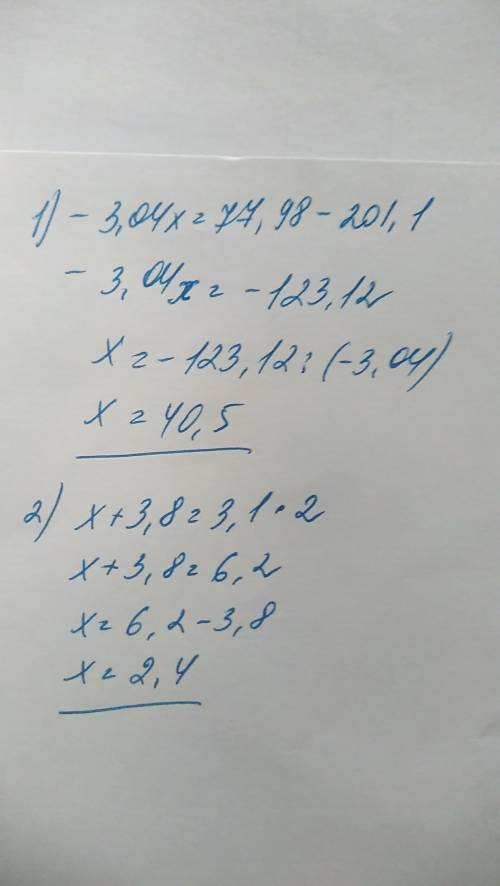 1) - 3,04x = 77,98 - 201,1
- 3,04x = - 123,12
x = - 123,12 : (-3,04)
x = 40,5
2) x + 3,8 = 3,1 · 2
x + 3,8 = 6,2
x = 6,2 - 3,8
x = 2,4